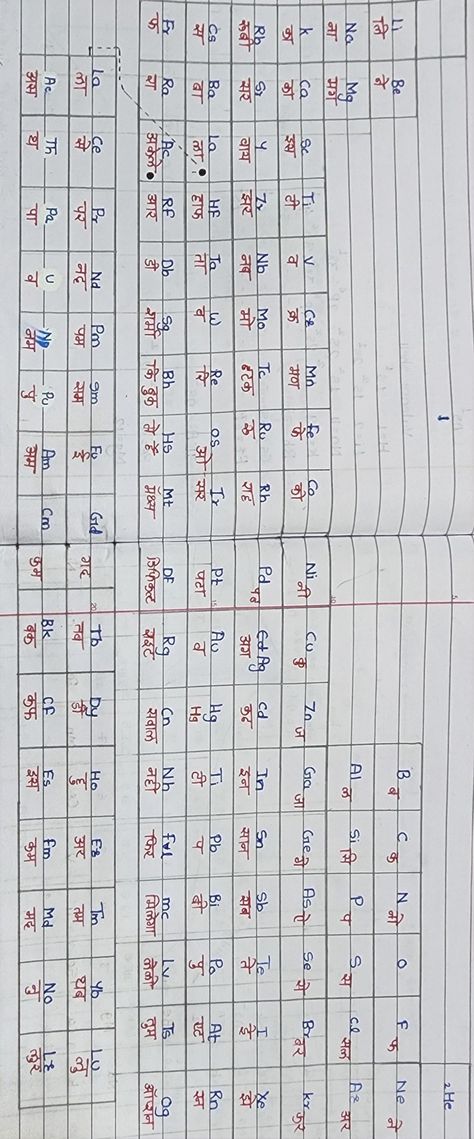 1
2He
Li Be B C N O F Ne
लि बे ब क नो फ ने
Na Mg Al Si P S Cl Ar
ना मग ल सि प स सल अर
K Ca Sc Ti V Cr Mn Fe Co Ni Cu Zn Ga Ge As Se Br Kr
का का इस ती व क्र मन फे को नी कु ज गा गे ऐ से बर कर
Rb Sr Y Zr Nb Mo Tc Ru Rh Pd Ag Cd In Sn Sb Te I Xe
रूबी सार वाय झर नब मो टेक रू राह पद अग कद इन सान सब ते इ झे
Cs Ba La HF Ta W Re Os Ir Pt Au Hg Ti Pb Bi Po At Rn
स बा ला हाफ ता व रि ओ सर पता व Hg टी प बी पु एट रन
Fr Ra Ac RF Db Sg Bh Hs Mt DF Rg Cn Nh Fl mc Lv Ts Og
फ रा अकेले आर डी शर्मा कि बुक ले है मैथ्स डिफिकल्ट राइट सवाल नहीं फिर मिलेगा लेलो तुम ऑप्शन
La Ce Pr Nd Pm Sm Eu Gd Tb Dy Ho Er Tm Yb Lu
ला से पर नद पम सम ई गाद तब डी हु अर तम याब लु
Ac Th Pa U Np Pu Am Cm Bk CF Es Fm Md No Lr
अस था पा व नम पु अम कम बक कफ इस फम मद नु लुर